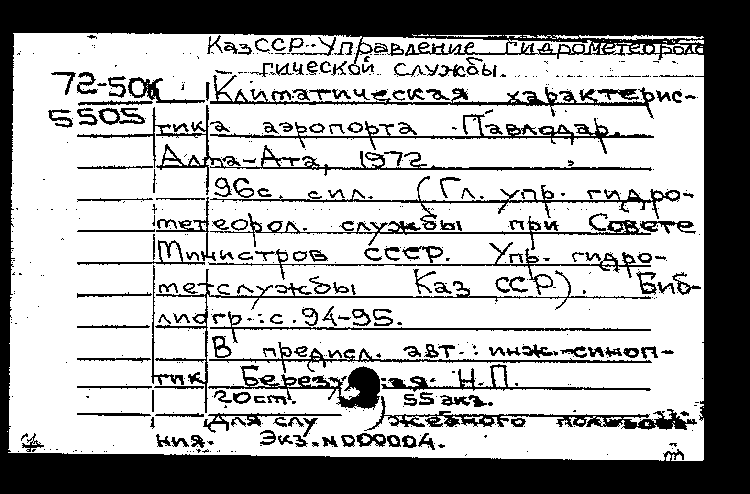 КазССР. Управление гидрометеороло
гической службы.
72-50к Климатическая характерис-
5505 тика аэропорта Павлодар.
Алма-Ата, 1972.
96с. с ил. (Гл. упр. гидро-
метеорол. службы при Совете
Министров СССР. Упр. гидро-
метслужбы Каз ССР). Биб-
лиогр.: с. 94-95.
В предисл. авт.: инж.-синоп-
тик Н.П.
20ст. 55 экз.
Для служебного пользова-
ния. Экз. N 000004.